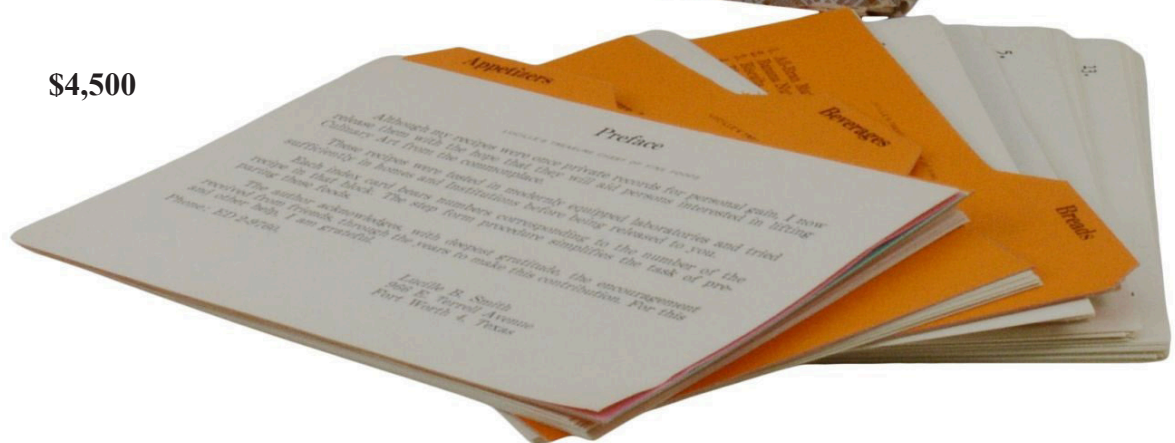 $4,500
Appetizers
Beverages
Breads
5.
13.
LUCILLE'S TREASURE CHEST OF FINE FOODS
Preface
Although my recipes were once private records for personal gain, I now
release them with the hope that they will aid persons interested in lifting
Culinary Art from the commonplace.
These recipes were tested in modernly equipped laboratories and tried
sufficiently in homes and Institutions before being released to you.
Each index card bears numbers corresponding to the number of the
recipe in that block. The step form procedure simplifies the task of pre-
paring these foods.
The author acknowledges, with deepest gratitude, the encouragement
received from friends, through the years to make this contribution. For this
and other aids, I am grateful.
Phone: ED
Lucille B. Smith
E. Terrell Avenue
Fort Worth 4, Texas